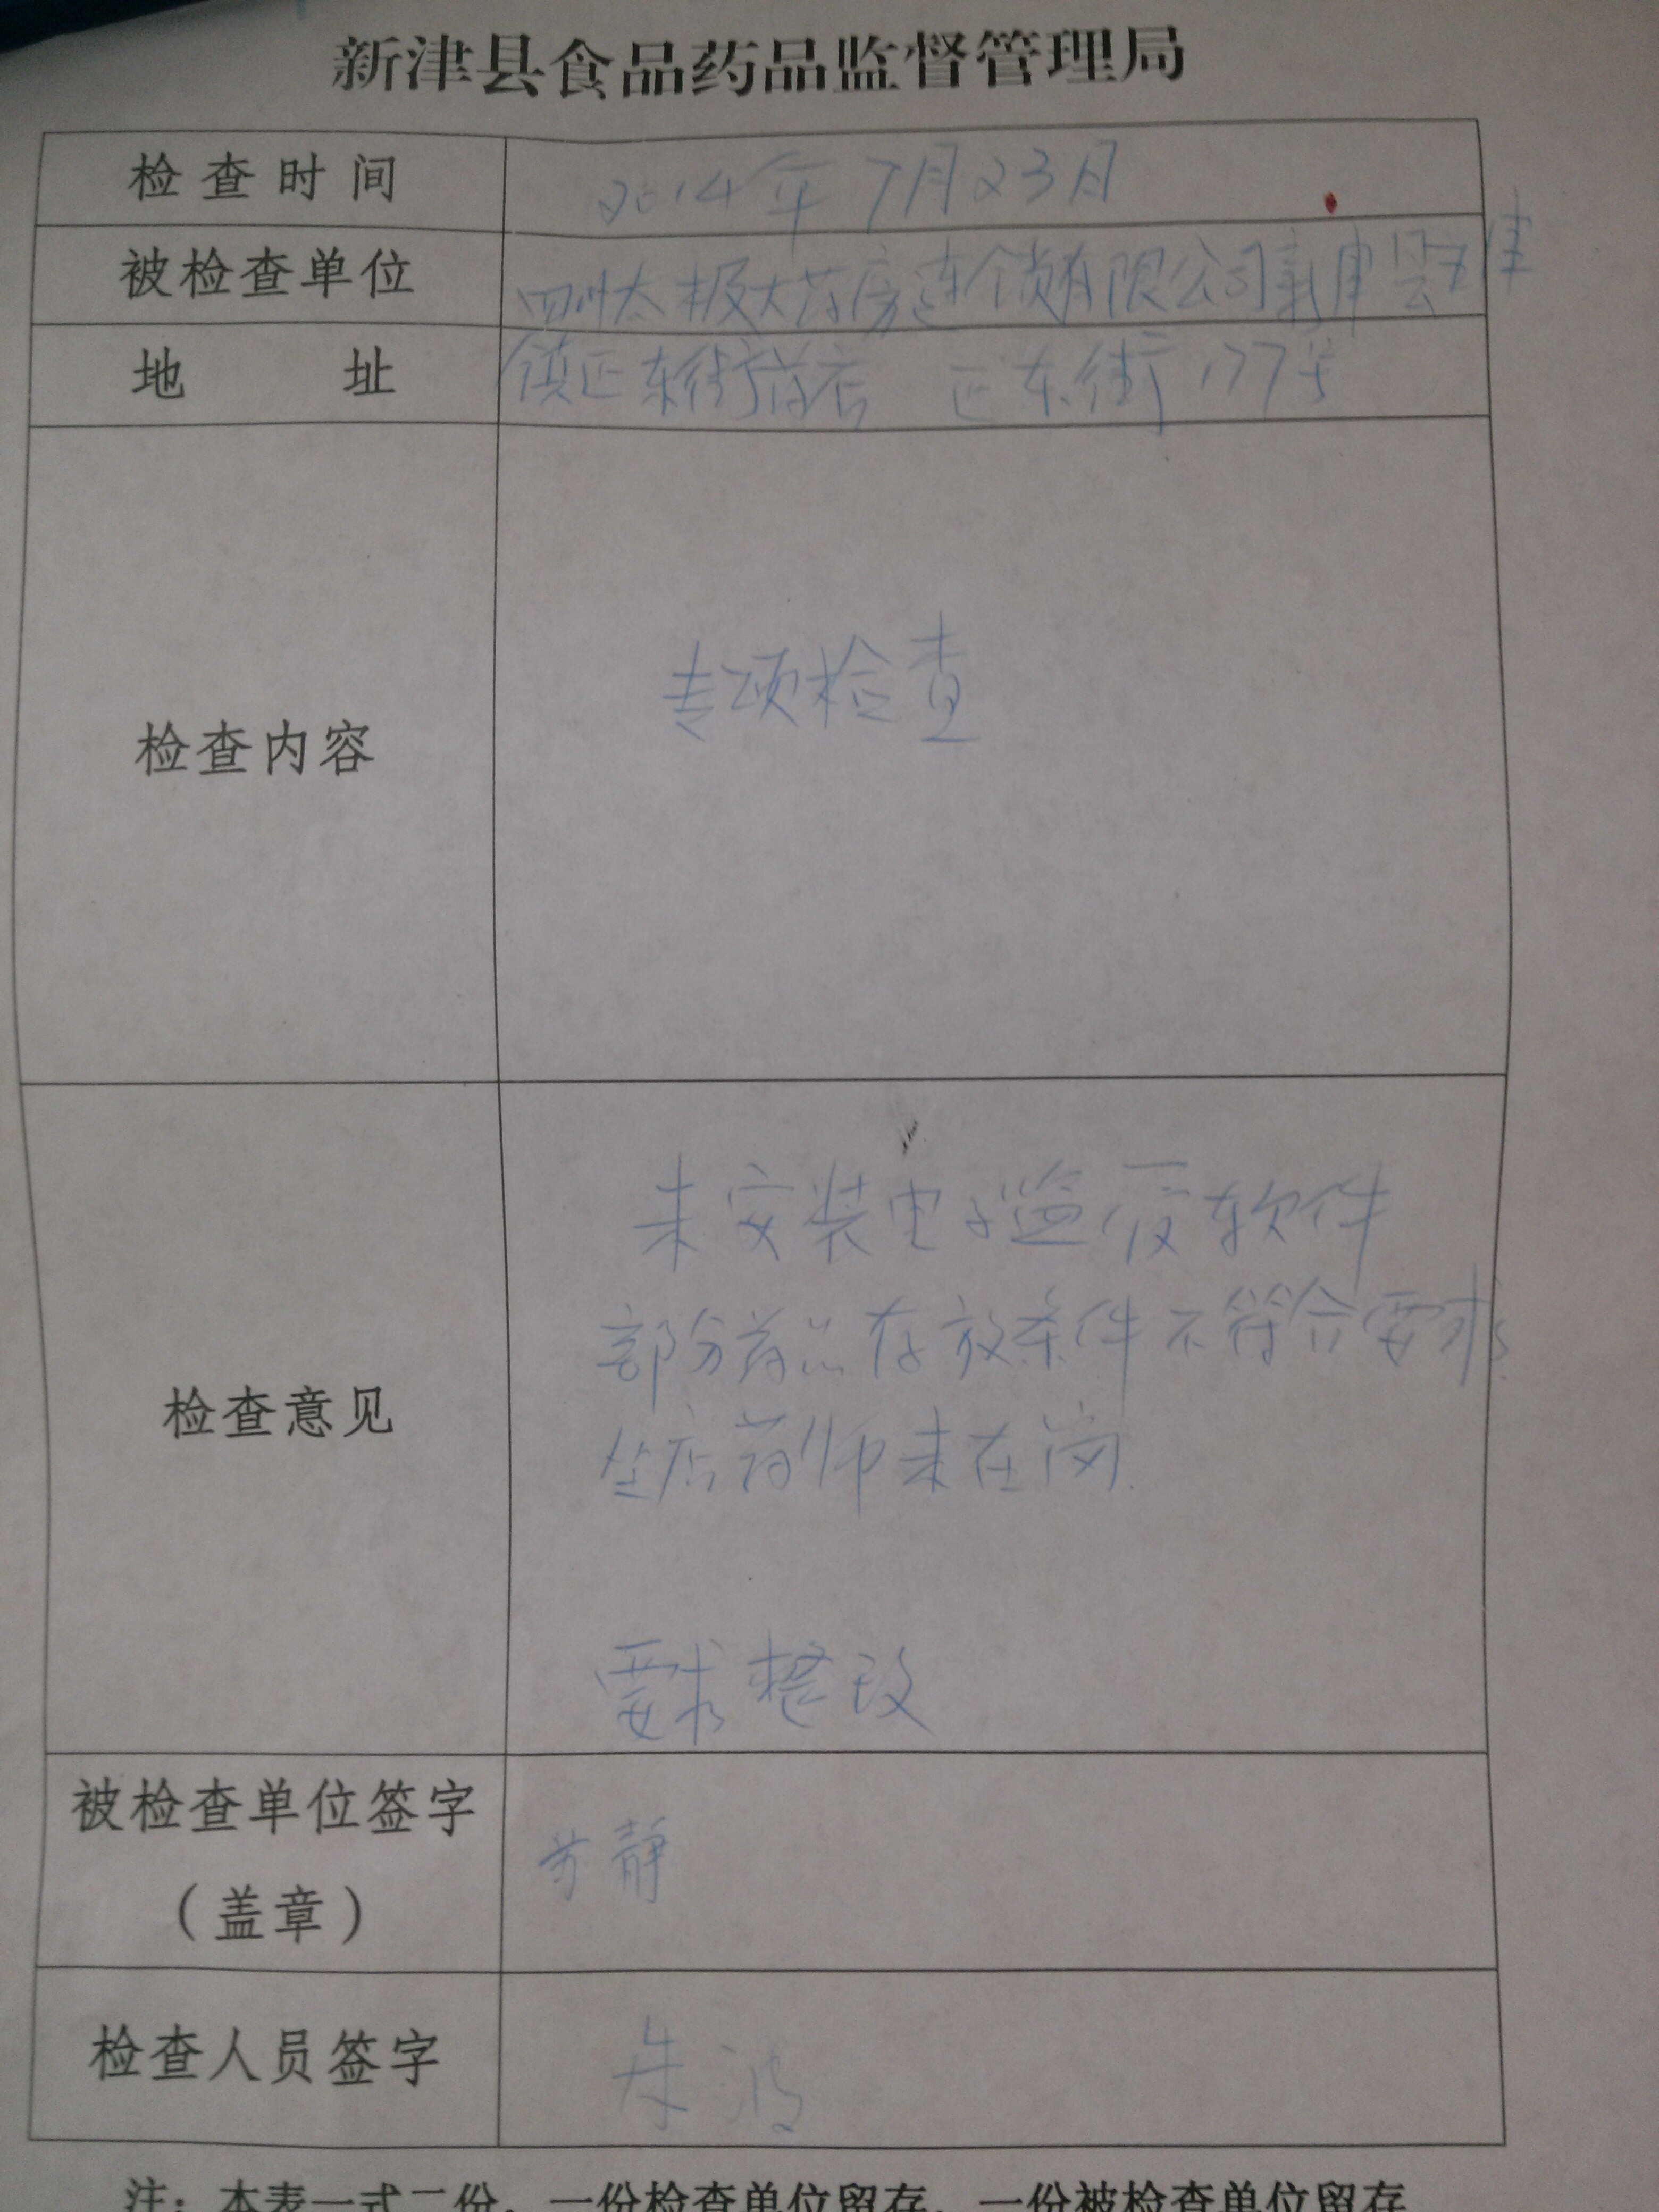 新津县食品药品监督管理局
检查时间 2014年7月23日
被检查单位 四川太极大药房连锁有限公司新津县五津
地 址 镇正东街药店 正东街177号
检查内容 专项检查
检查意见
未安装电子监管软件
部分药品存放条件不符合要求
坐店药师未在岗.
要求整改
被检查单位签字
(盖章)
静
检查人员签字 朱波
注：本表一式二份，一份检查单位留存，一份被检查单位留存